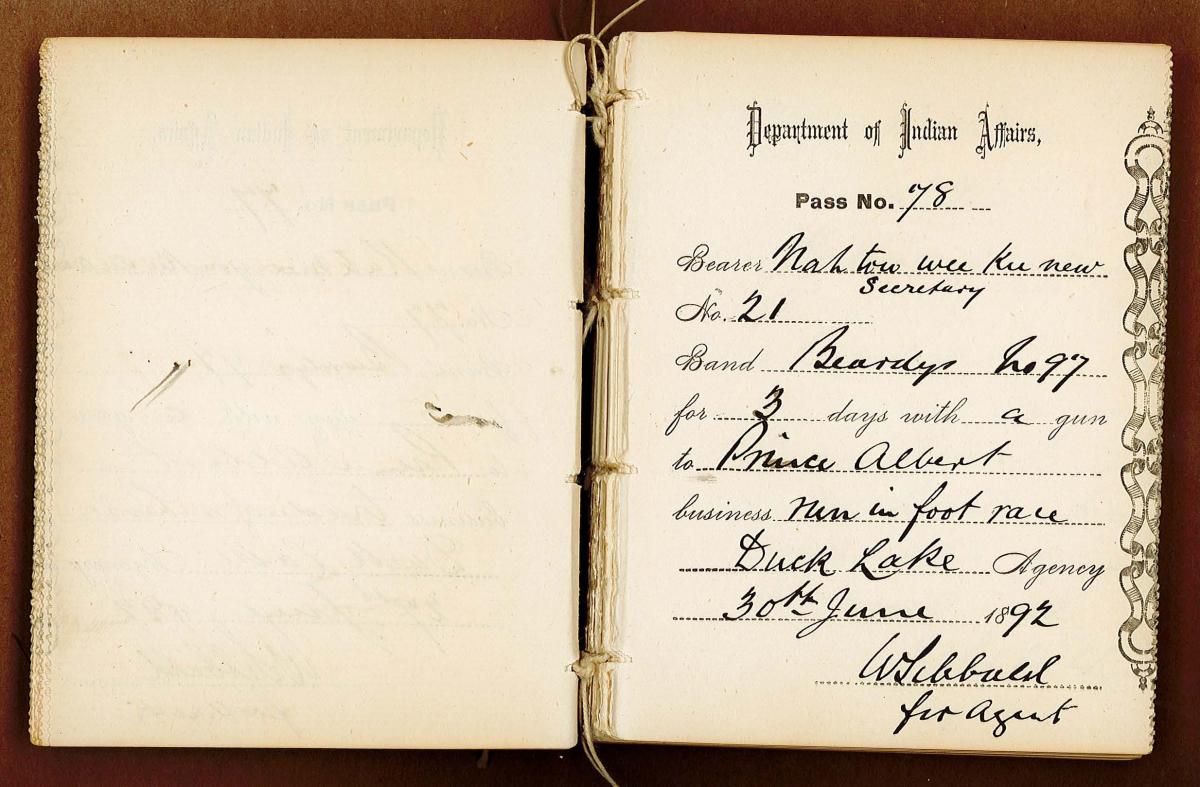 Department of Indian Affairs,
Pass No. 78
Bearer Nah tow wee Ku new
Secretary
No. 21
Band Beardys No 97
for 3 days with a gun
to Prince Albert
business run in foot race
Duck Lake Agency
30th June 1892
WSibbald
for Agent